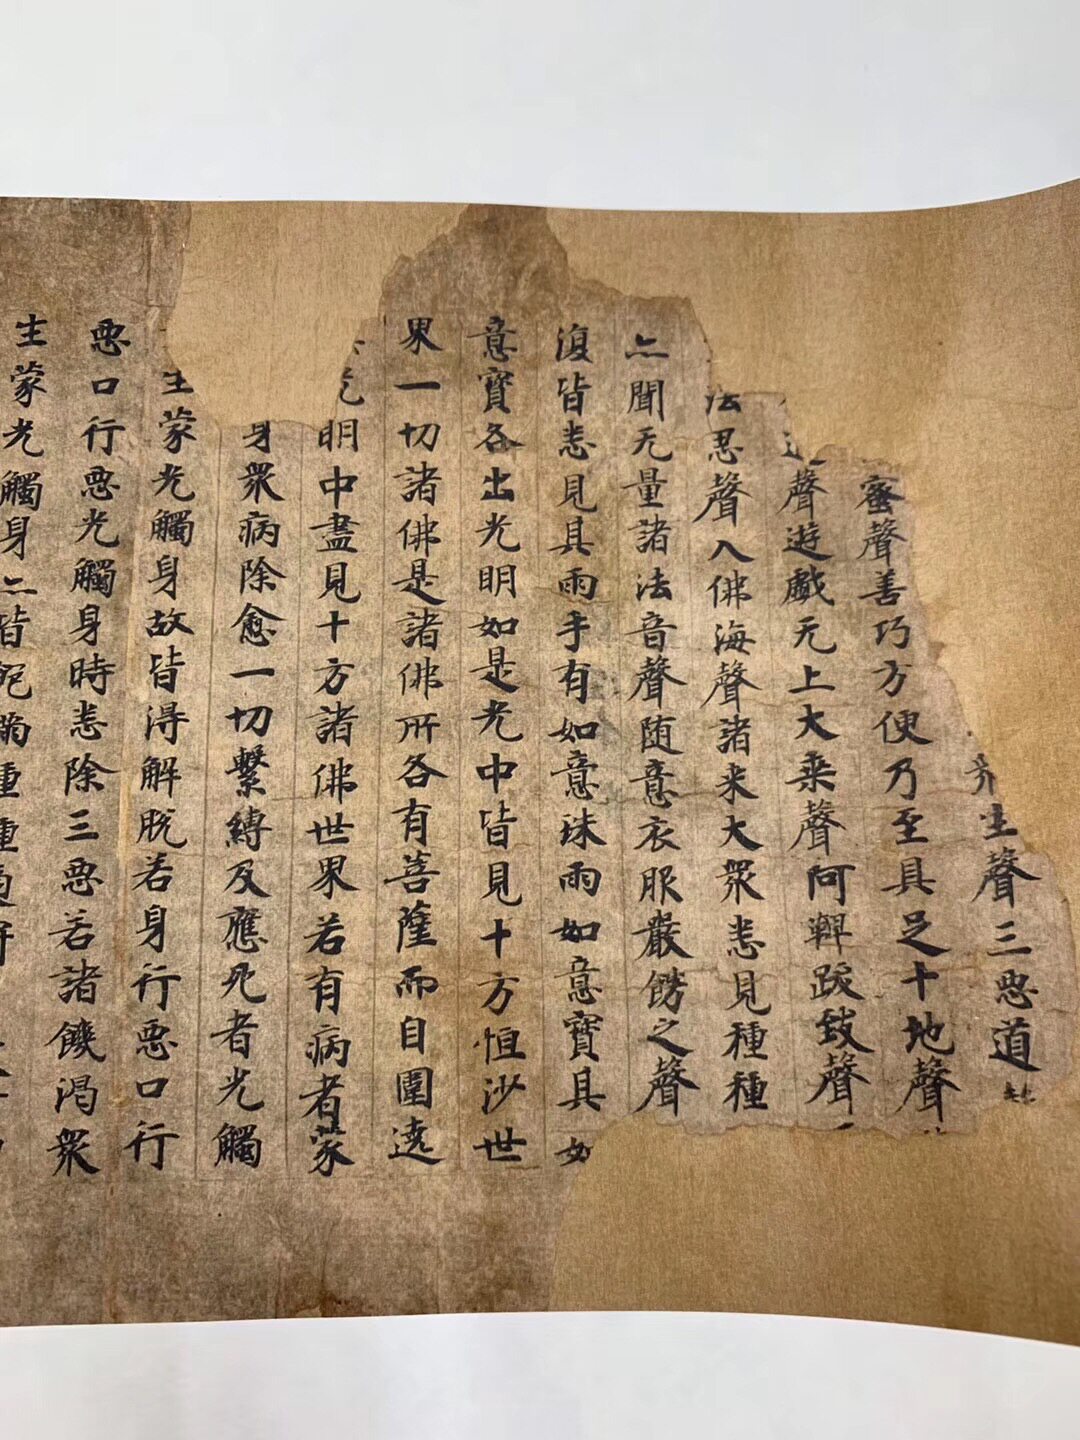 生聲三惡道
蜜聲善巧方便乃至具足十地聲
聲遊戲无上大乘聲阿鞞跋致聲
法忍聲入佛海聲諸来大衆悉見種種
亦聞无量諸法音聲随意衣服嚴餝之聲
復皆悉見其雨手有如意珠雨如意寶其如
意寶各出光明如是光中皆見十方恒沙世
界一切諸佛是諸佛所各有菩薩而自圍遶
光明中盡見十方諸佛世界若有病者蒙
身衆病除愈一切繫縛及應死者光觸
生蒙光觸身故皆得解脫若身行惡口行
惡口行惡光觸身時悉除三惡若諸饑渴衆
生蒙光觸身亦皆飽滿種種